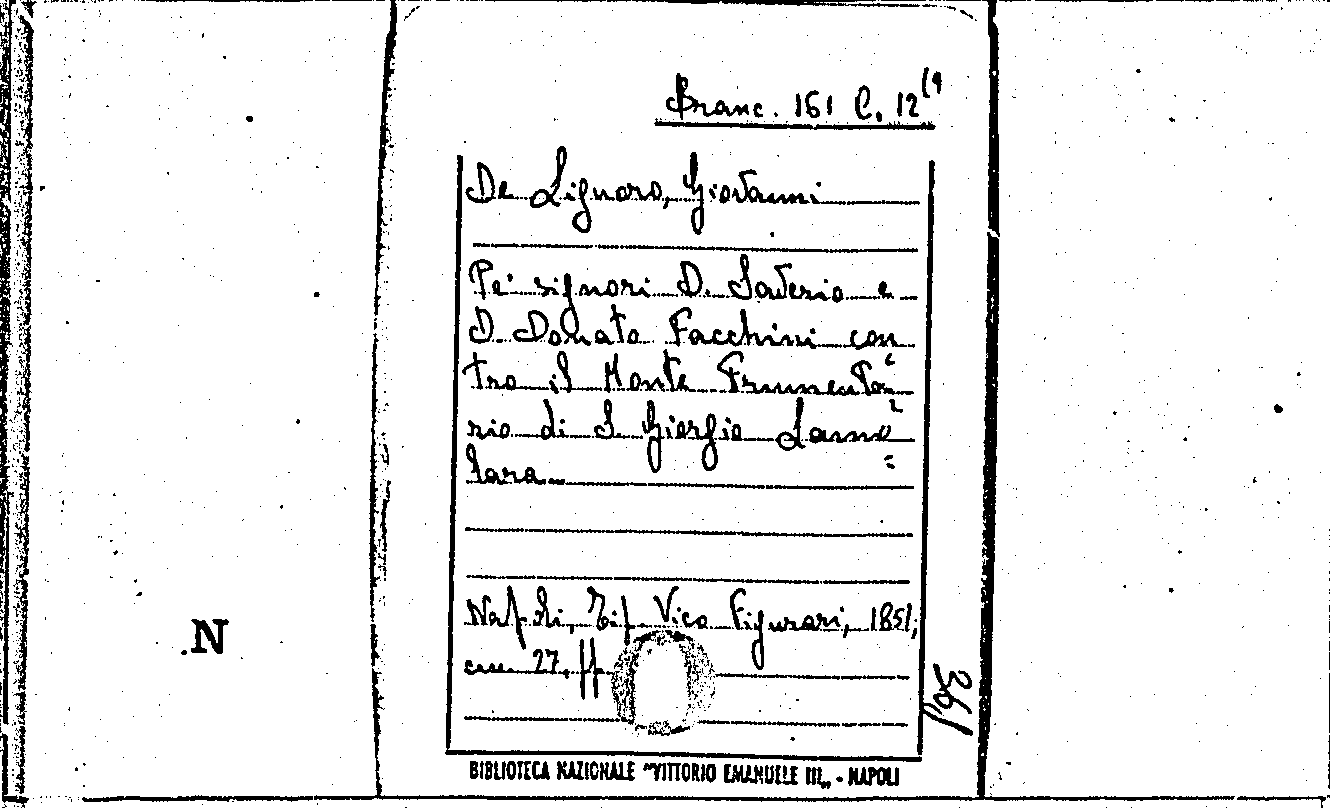 Branc. 161 C. 12 (9
De Lignoro, Giovanni
Pe' signori D. Saverio e
D. Donato Facchini con
tro il Monte Frumenta
rio di S. Giorgio Lamo
lara
Napoli, Tip. Vico Figurari, 1851,
cm. 27, pp.
36
N
BIBLIOTECA NAZIONALE "VITTORIO EMANUELE III„ - NAPOLI